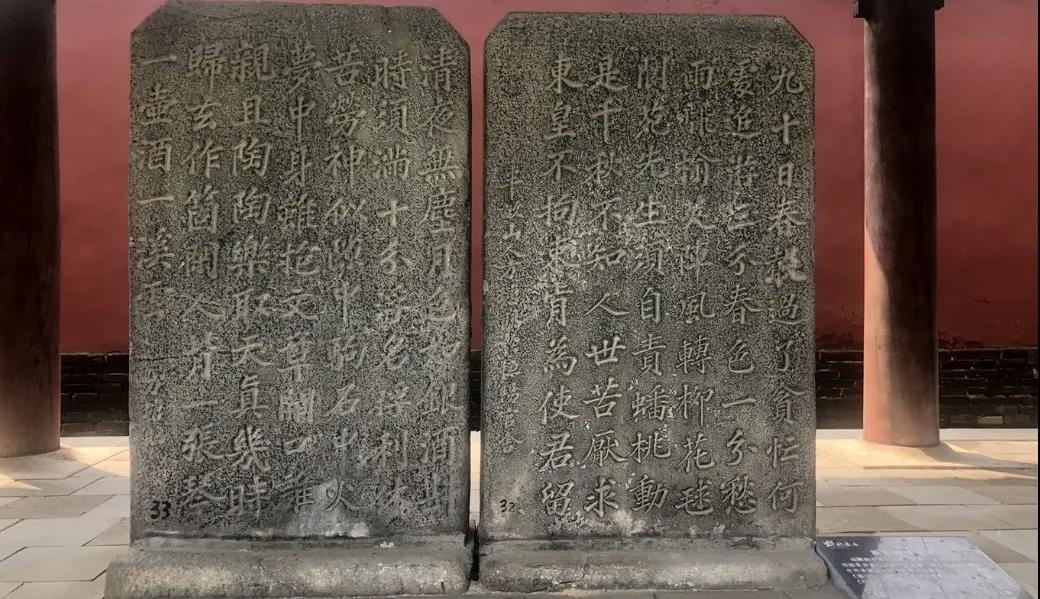 九十日春過了貪忙何
處追游三分春色一分愁
雨翻榆莢陣風轉柳花毬
閬苑先生須自責蟠桃動
是千秋不知人世苦厭求
東皇不拘束肯為使君留
32
清夜無塵月色如銀酒斟
時須滿十分浮名浮利休
苦勞神似隙中駒石中火
夢中身雖抱文章開口誰
親且陶陶樂取天真幾時
歸去作箇閒人背一張琴
一壺酒一溪雲
33